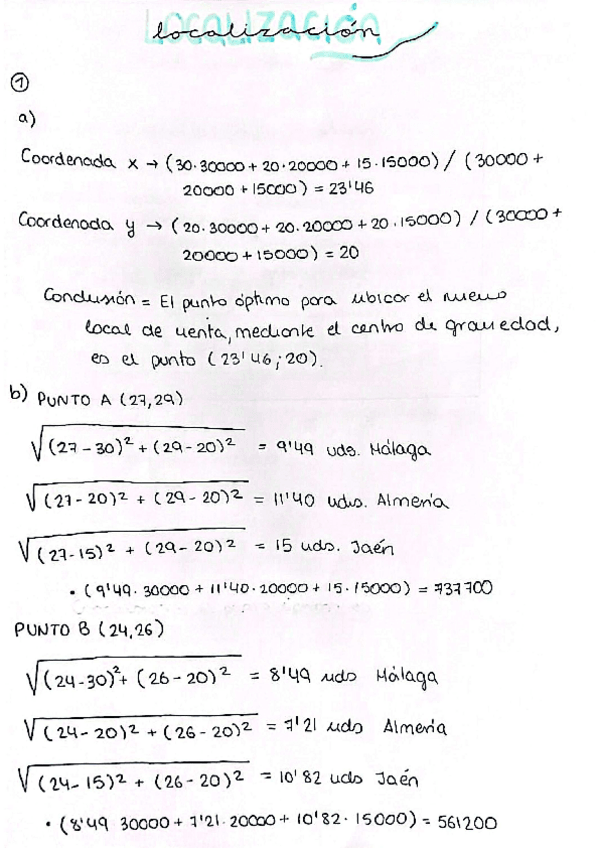 localización
①
a)
Coordenada x → (30·30000 + 20·20000 + 15·15000) / (30000 +
20000 + 15000) = 23'46
Coordenada y → (20·30000 + 20·20000 + 20·15000) / (30000 +
20000 + 15000) = 20
Conclusión = El punto óptimo para ubicar el nuevo
local de venta, mediante el centro de gravedad,
es el punto (23'46; 20).
b) PUNTO A (27,29)
√(27-30)² + (29-20)² = 9'49 uds. Málaga
√(27-20)² + (29-20)² = 11'40 uds. Almería
√(27-15)² + (29-20)² = 15 uds. Jaén
• (9'49·30000 + 11'40·20000 + 15·15000) = 737700
PUNTO B (24,26)
√(24-30)² + (26-20)² = 8'49 uds Málaga
√(24-20)² + (26-20)² = 7'21 uds Almería
√(24-15)² + (26-20)² = 10'82 uds Jaén
• (8'49 30000 + 7'21·20000 + 10'82·15000) = 561200